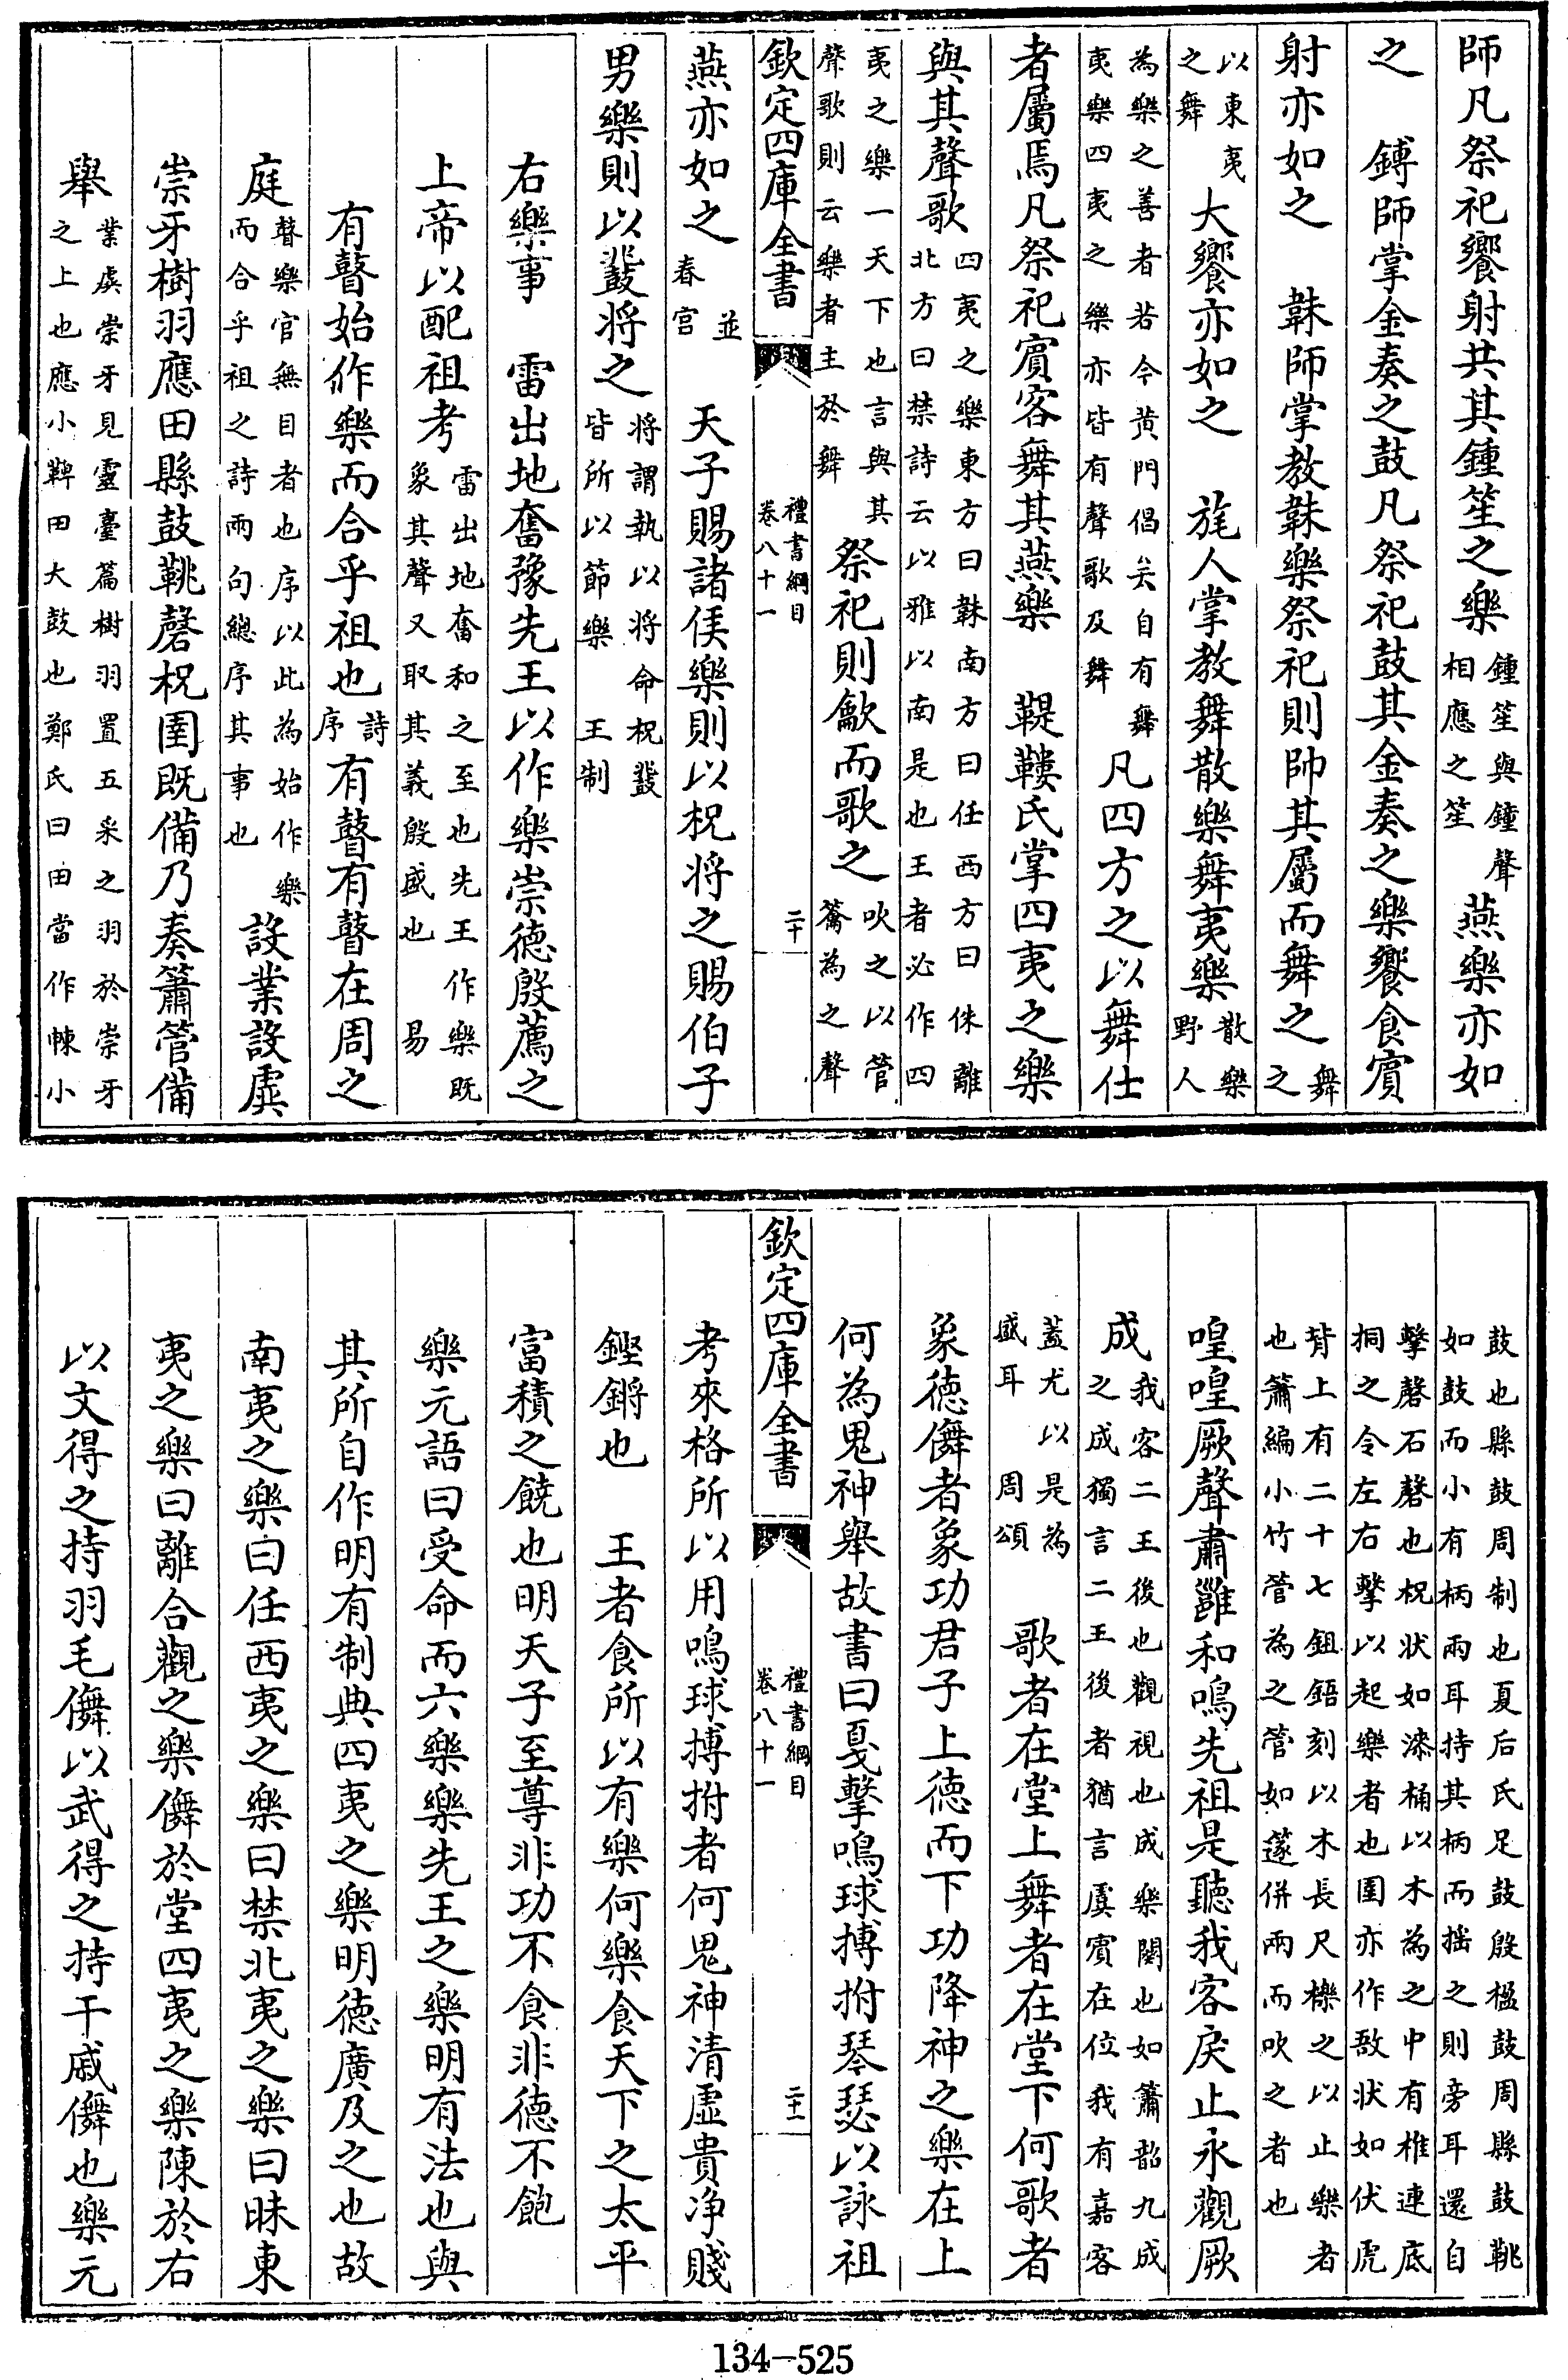 師凡祭祀饗射共其鍾笙之樂鍾笙與鐘聲相應之笙燕樂亦如
之　鎛師掌金奏之鼓凡祭祀鼓其金奏之樂饗食賓
射亦如之　韎師掌教韎樂祭祀則帥其屬而舞之舞之
以東夷之舞大饗亦如之　旄人掌教舞散樂舞夷樂散樂野人
為樂之善者若今黄門倡矣自有舞夷樂四夷之樂亦皆有聲歌及舞凡四方之以舞仕
者屬焉凡祭祀賓客舞其燕樂　鞮鞻氏掌四夷之樂
與其聲歌四夷之樂東方曰韎南方曰任西方曰侏離北方曰禁詩云以雅以南是也王者必作四
夷之樂一天下也言與其聲歌則云樂者主於舞祭祀則龡而歌之吹之以管籥為之聲
欽定四庫全書　禮書綱目卷八十一　二十
燕亦如之並春官　天子賜諸侯樂則以柷將之賜伯子
男樂則以鼗將之將謂執以將命柷鼗皆所以節樂　王制
右樂事　雷出地奮豫先王以作樂崇德殷薦之
上帝以配祖考雷出地奮和之至也先王作樂既象其聲又取其義殷盛也　易
有瞽始作樂而合乎祖也詩序有瞽有瞽在周之
庭瞽樂官無目者也序以此為始作樂而合乎祖之詩兩句總序其事也設業設虡
崇牙樹羽應田縣鼓鞉磬柷圉既備乃奏簫管備
舉業虡崇牙見靈臺篇樹羽置五采之羽於崇牙之上也應小鞞田大鼓也鄭氏曰田當作朄小
鼓也縣鼓周制也夏后氏足鼓殷楹鼓周縣鼓鞉如鼓而小有柄兩耳持其柄而搖之則旁耳還自
擊磬石磬也柷狀如漆桶以木為之中有椎連底挏之令左右擊以起樂者也圉亦作敔狀如伏虎
背上有二十七鉏鋙刻以木長尺櫟之以止樂者也簫編小竹管為之管如篴併兩而吹之者也
喤喤厥聲肅雝和鳴先祖是聽我客戾止永觀厥
成我客二王後也觀視也成樂闋也如簫韶九成之成獨言二王後者猶言虞賓在位我有嘉客
蓋尤以是為盛耳　周頌　歌者在堂上舞者在堂下何歌者
象德儛者象功君子上德而下功降神之樂在上
何為鬼神舉故書曰戛擊鳴球搏拊琴瑟以詠祖
欽定四庫全書　禮書綱目卷八十一　二十一
考來格所以用鳴球搏拊者何鬼神清虛貴净賤
鏗鏘也　王者食所以有樂何樂食天下之太平
富積之饒也明天子至尊非功不食非德不飽
樂元語曰受命而六樂樂先王之樂明有法也與
其所自作明有制典四夷之樂明德廣及之也故
南夷之樂曰任西夷之樂曰禁北夷之樂曰昧東
夷之樂曰離合觀之樂儛於堂四夷之樂陳於右
以文得之持羽毛儛以武得之持干戚儛也樂元
134-525